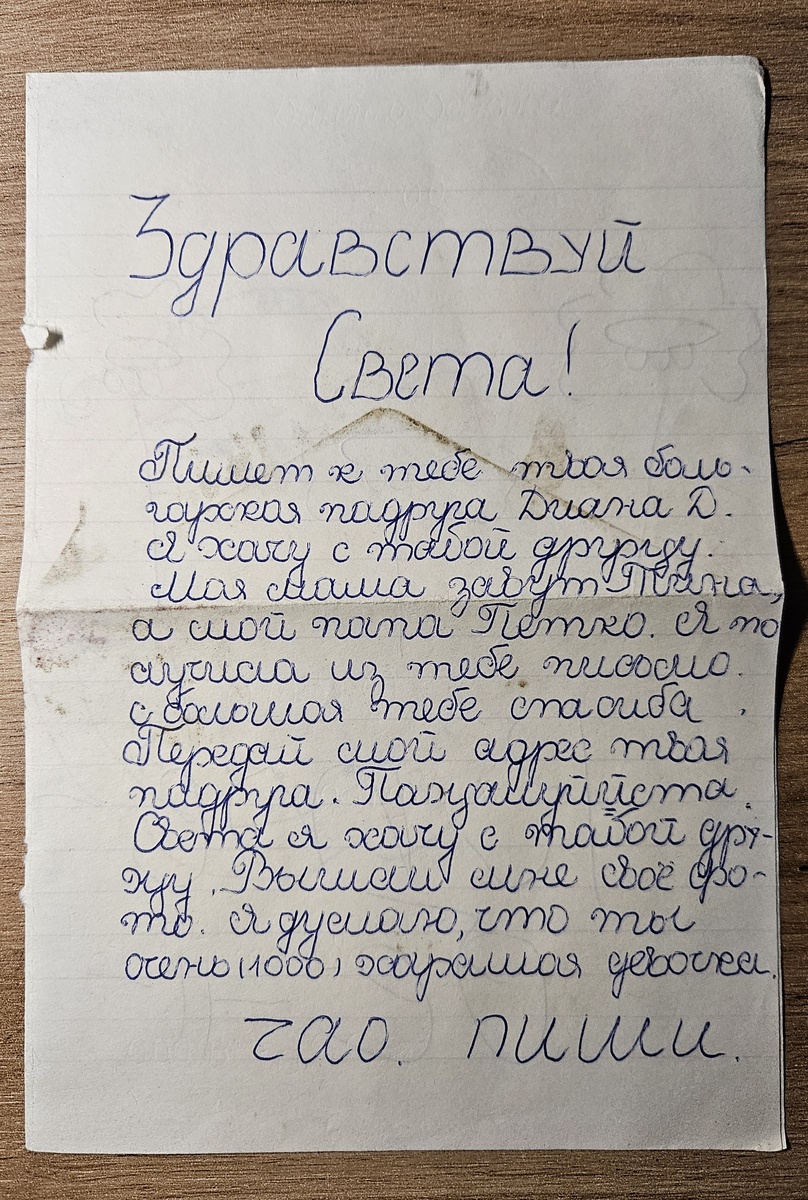 Здравствуй
Света!
Пишет к тебе твоя боль-
гарская падруга Диана Д.
Я хачу с табой дружу.
Моя мама завут Пђина,
а мой папа Петко. Я по
лучила из тебе письмо.
с большая тебе спасиба.
Передай мой адрес твоя
падруга. Пажамуййста.
Света я хачу с табой дру-
жу. Вышли мне своё фо-
то. Я думаю, что ты
очень (1000) харашая девочка.
чао. пиши.